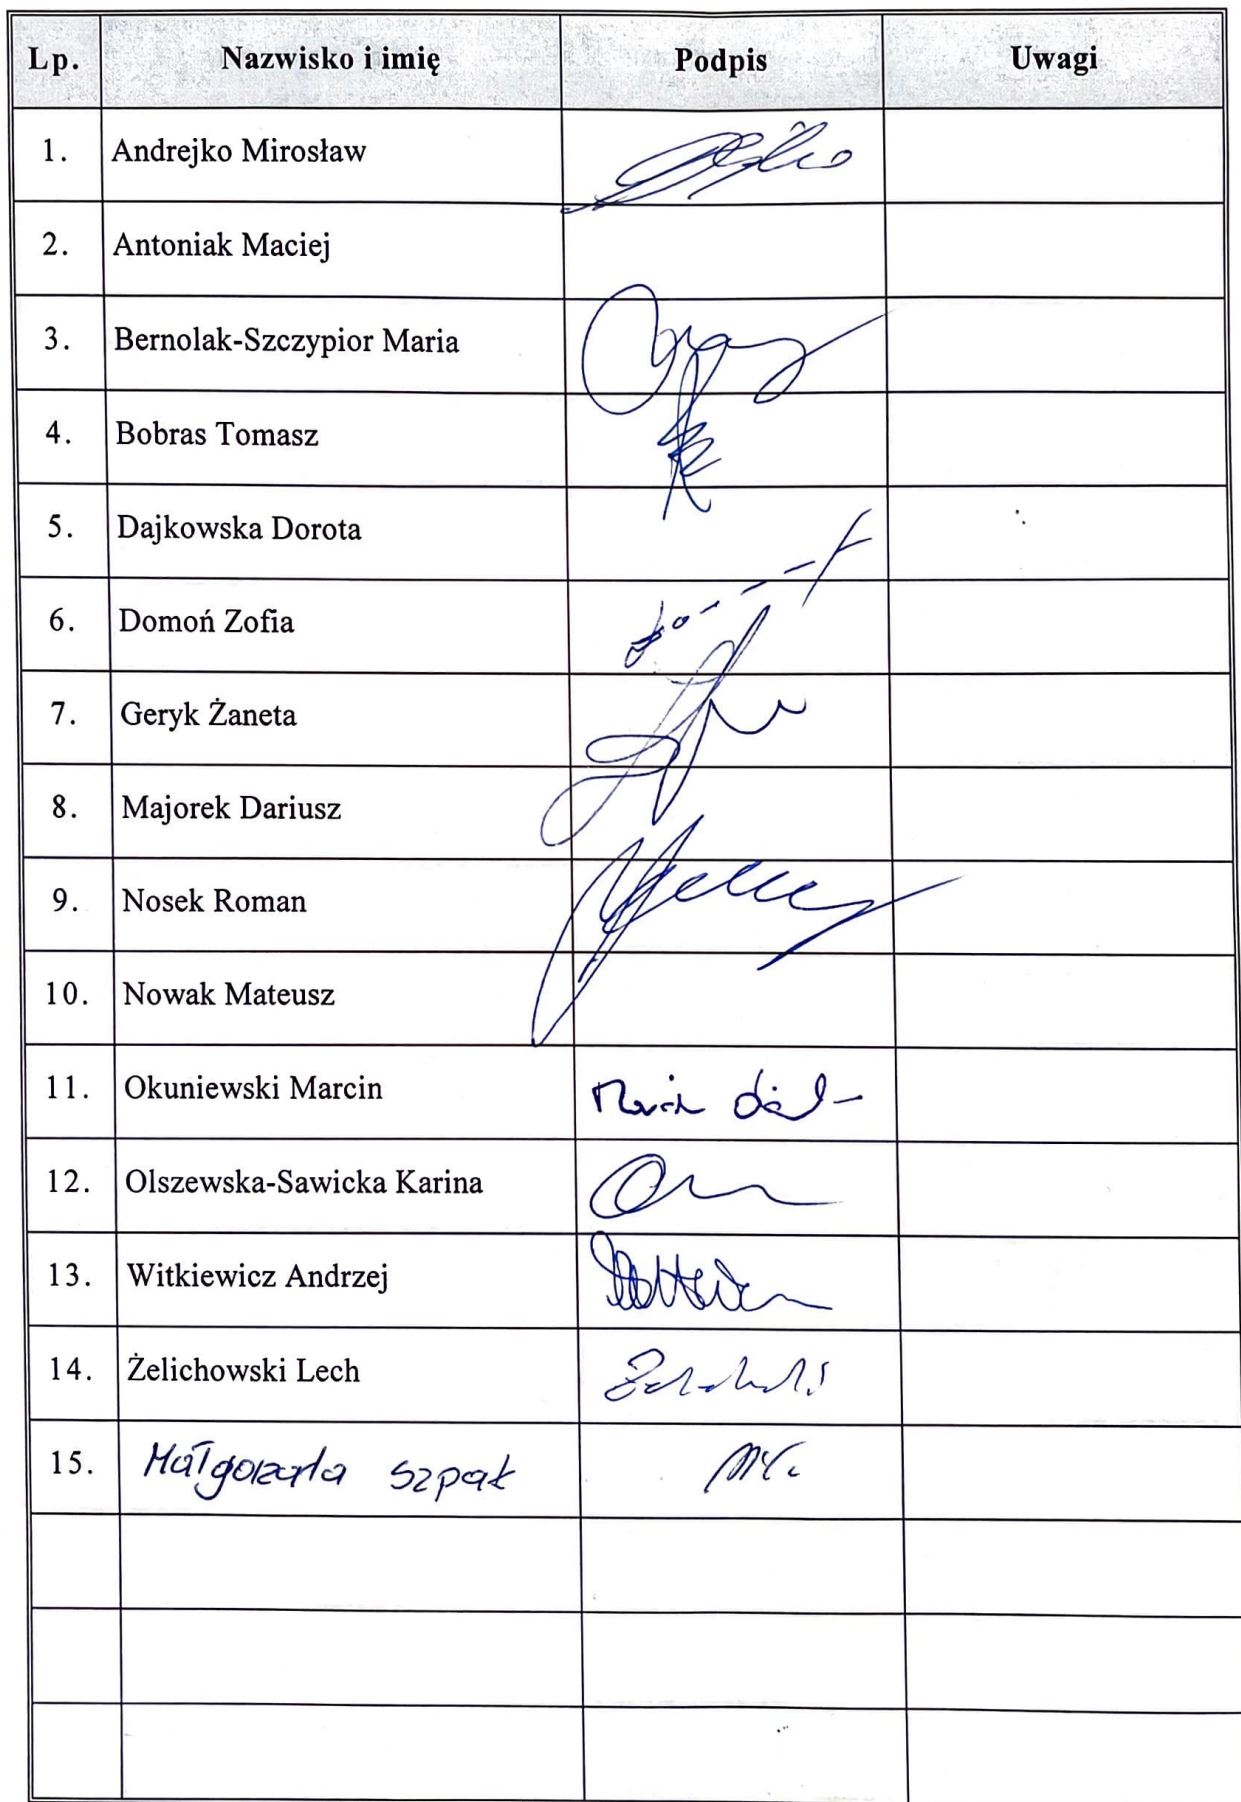 Lp. Nazwisko i imię Podpis Uwagi
1. Andrejko Mirosław
2. Antoniak Maciej
3. Bernolak-Szczypior Maria
4. Bobras Tomasz
5. Dajkowska Dorota
6. Domoń Zofia
7. Geryk Żaneta
8. Majorek Dariusz
9. Nosek Roman
10. Nowak Mateusz
11. Okuniewski Marcin
12. Olszewska-Sawicka Karina
13. Witkiewicz Andrzej
14. Żelichowski Lech
15. Małgorzata Szpak